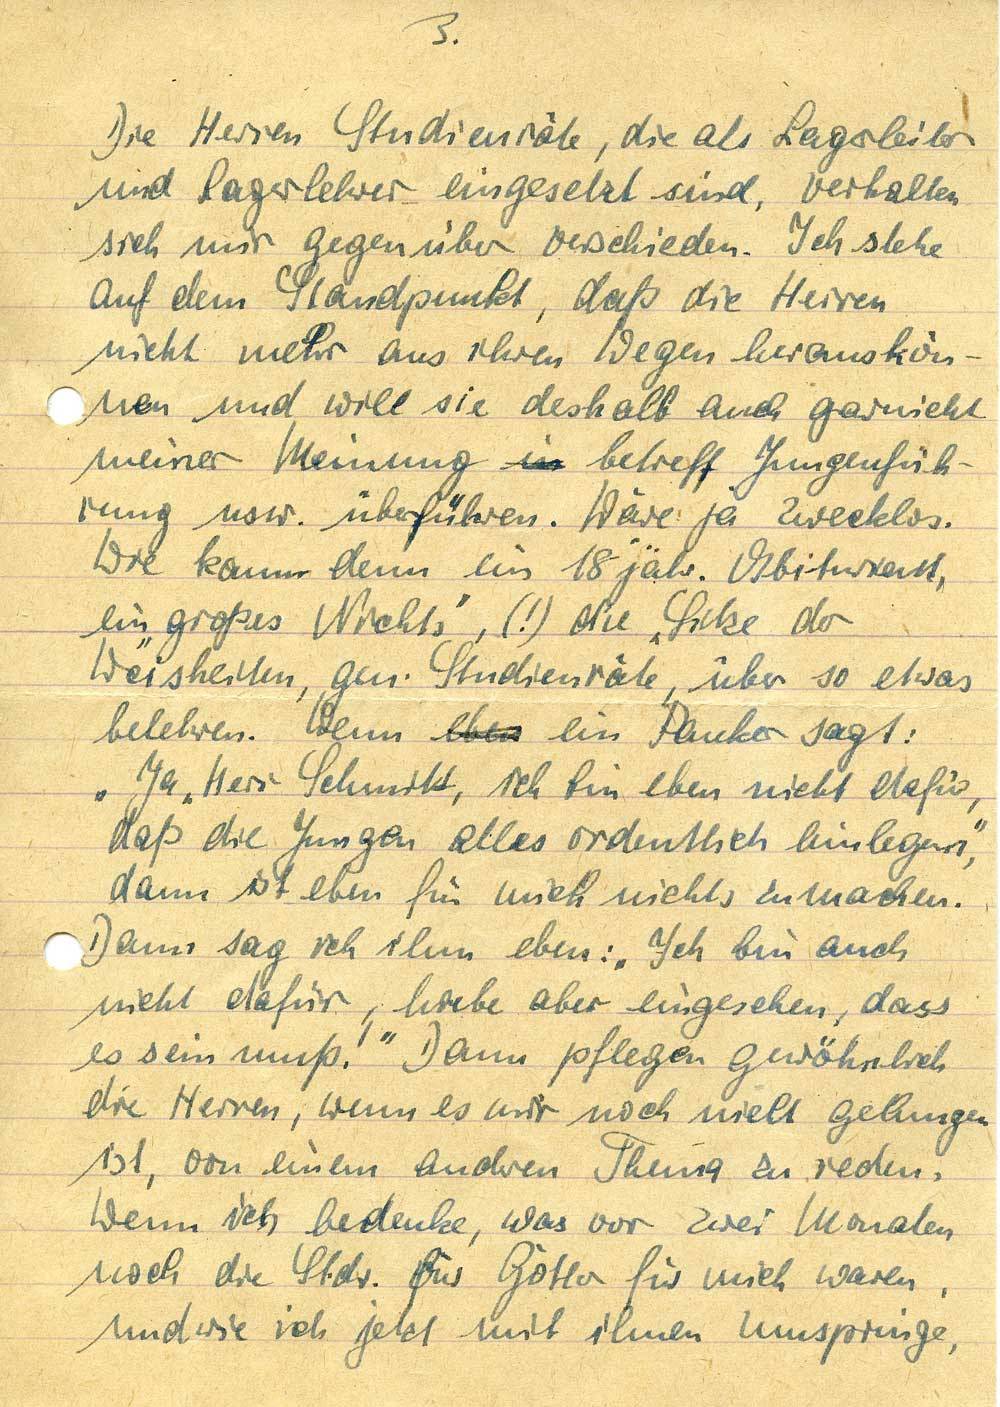 3.
Die Herren Studienräte, die als Lagerleiter
und Lagerlehrer eingesetzt sind, verhalten
sich mir gegenüber verschieden. Ich stehe
auf dem Standpunkt, daß die Herren
nicht mehr aus ihren Wegen herauskön-
nen und will sie deshalb auch garnicht
meiner Meinung in betreff Jungenfüh-
rung usw. überführen. Wäre ja zwecklos.
Wie kann denn ein 18 jähr. Abiturient,
ein „großes Nichts", (!) die „Sitze der
Weisheiten, gen. Studienräte, über so etwas
belehren. Wenn eben ein Pauker sagt:
„Ja, Herr Schmitt, ich bin eben nicht dafür,
daß die Jungen alles ordentlich hinlegen",
dann ist eben für mich nichts zu machen.
Dann sag ich ihm eben: „Ich bin auch
nicht dafür, habe aber eingesehen, dass
es sein muß!" Dann pflegen gewöhnlich
die Herren, wenn es mir noch nicht gelungen
ist, von einem andren Thema zu reden.
Wenn ich bedenke, was vor zwei Monaten
noch die Stdr. für Götter für mich waren,
und wie ich jetzt mit ihnen umspringe,